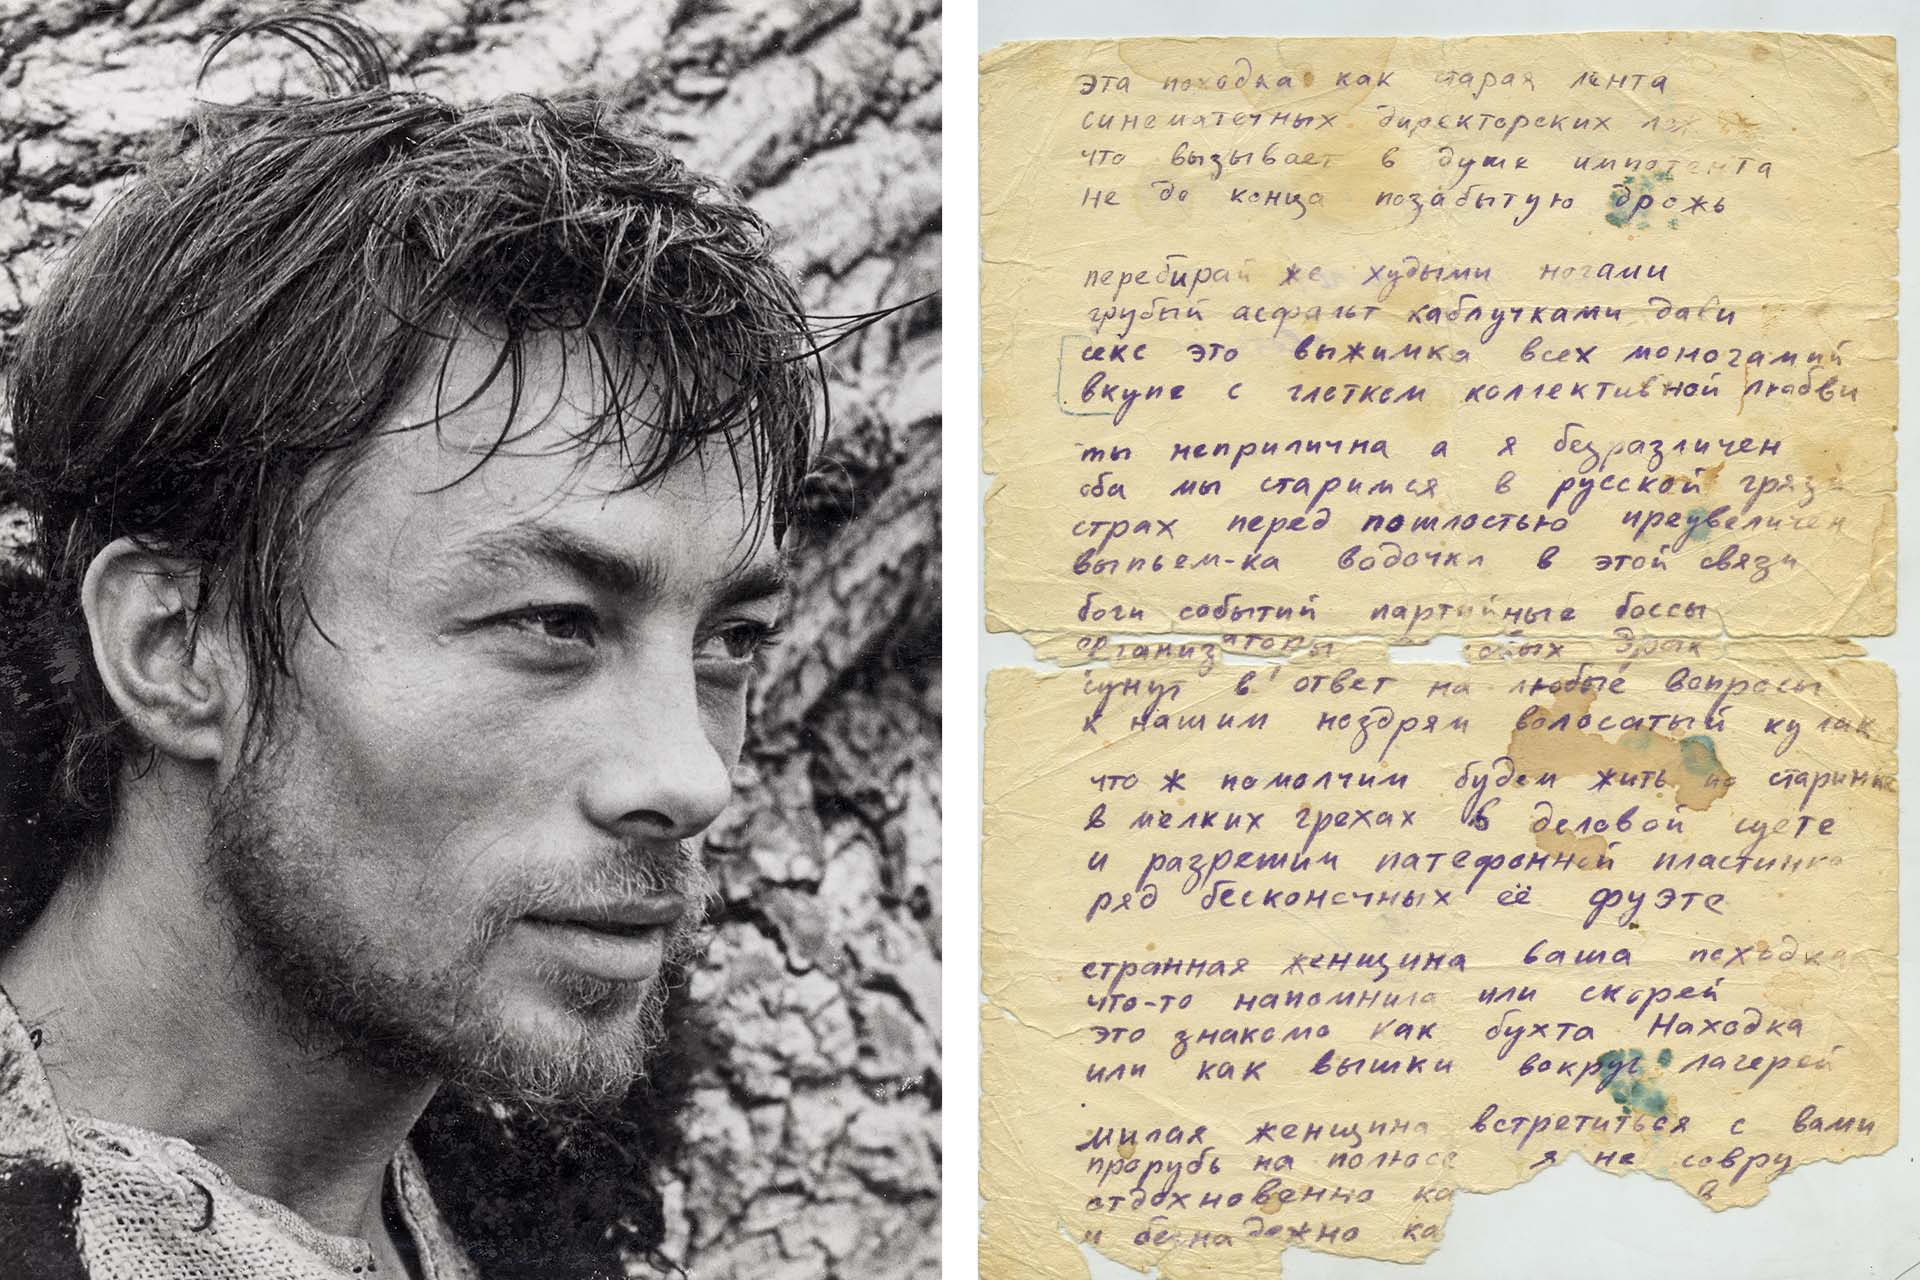 эта походка как старая лента
синематечных директорских лож
что вызывает в душе импотента
не до конца позабытую дрожь
перебирай же худыми ногами
грубый асфальт каблучками дави
секс это выжимка всех моногамий
вкупе с глотком коллективной любви
ты неприлична а я безразличен
оба мы старимся в русской грязи
страх перед пошлостью преувеличен
выпьем-ка водочки в этой связи
боги событий партийные боссы
организаторы драк
сунут в ответ на любые вопросы
к нашим ноздрям волосатый кулак
что ж помолчим будем жить по старинке
в мелких грехах в деловой суете
и разрешим патефонной пластинке
ряд бесконечных её фуэте
странная женщина ваша походка
что-то напомнила или скорей
это знакомо как бухта Находка
или как вышки вокруг лагерей
милая женщина встретиться с вами
прорубь на полюсе я не совру
отдохновенно ка в
и безнадежно ка